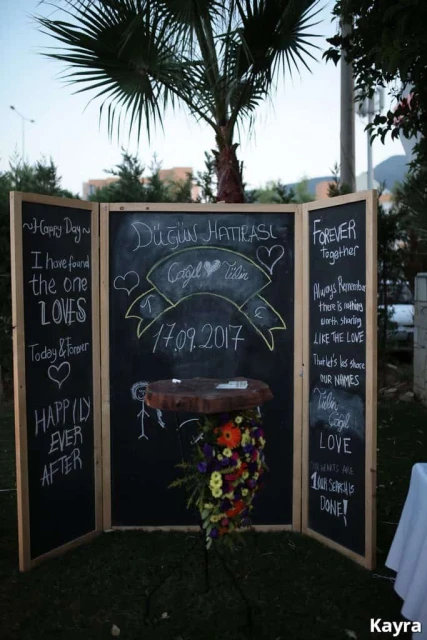 Happy Day
I have found
the one
LOVES
Today & Forever
HAPPILY
EVER
AFTER
DÜĞÜN HATIRASI
Çağıl Tülin
17.09.2017
FOREVER
together
Always Remember
there is nothing
worth sharing
LIKE THE LOVE
That let's us share
OUR NAMES
Tülin
Çağıl
LOVE
OUR SEARCH IS
DONE!
Kayra